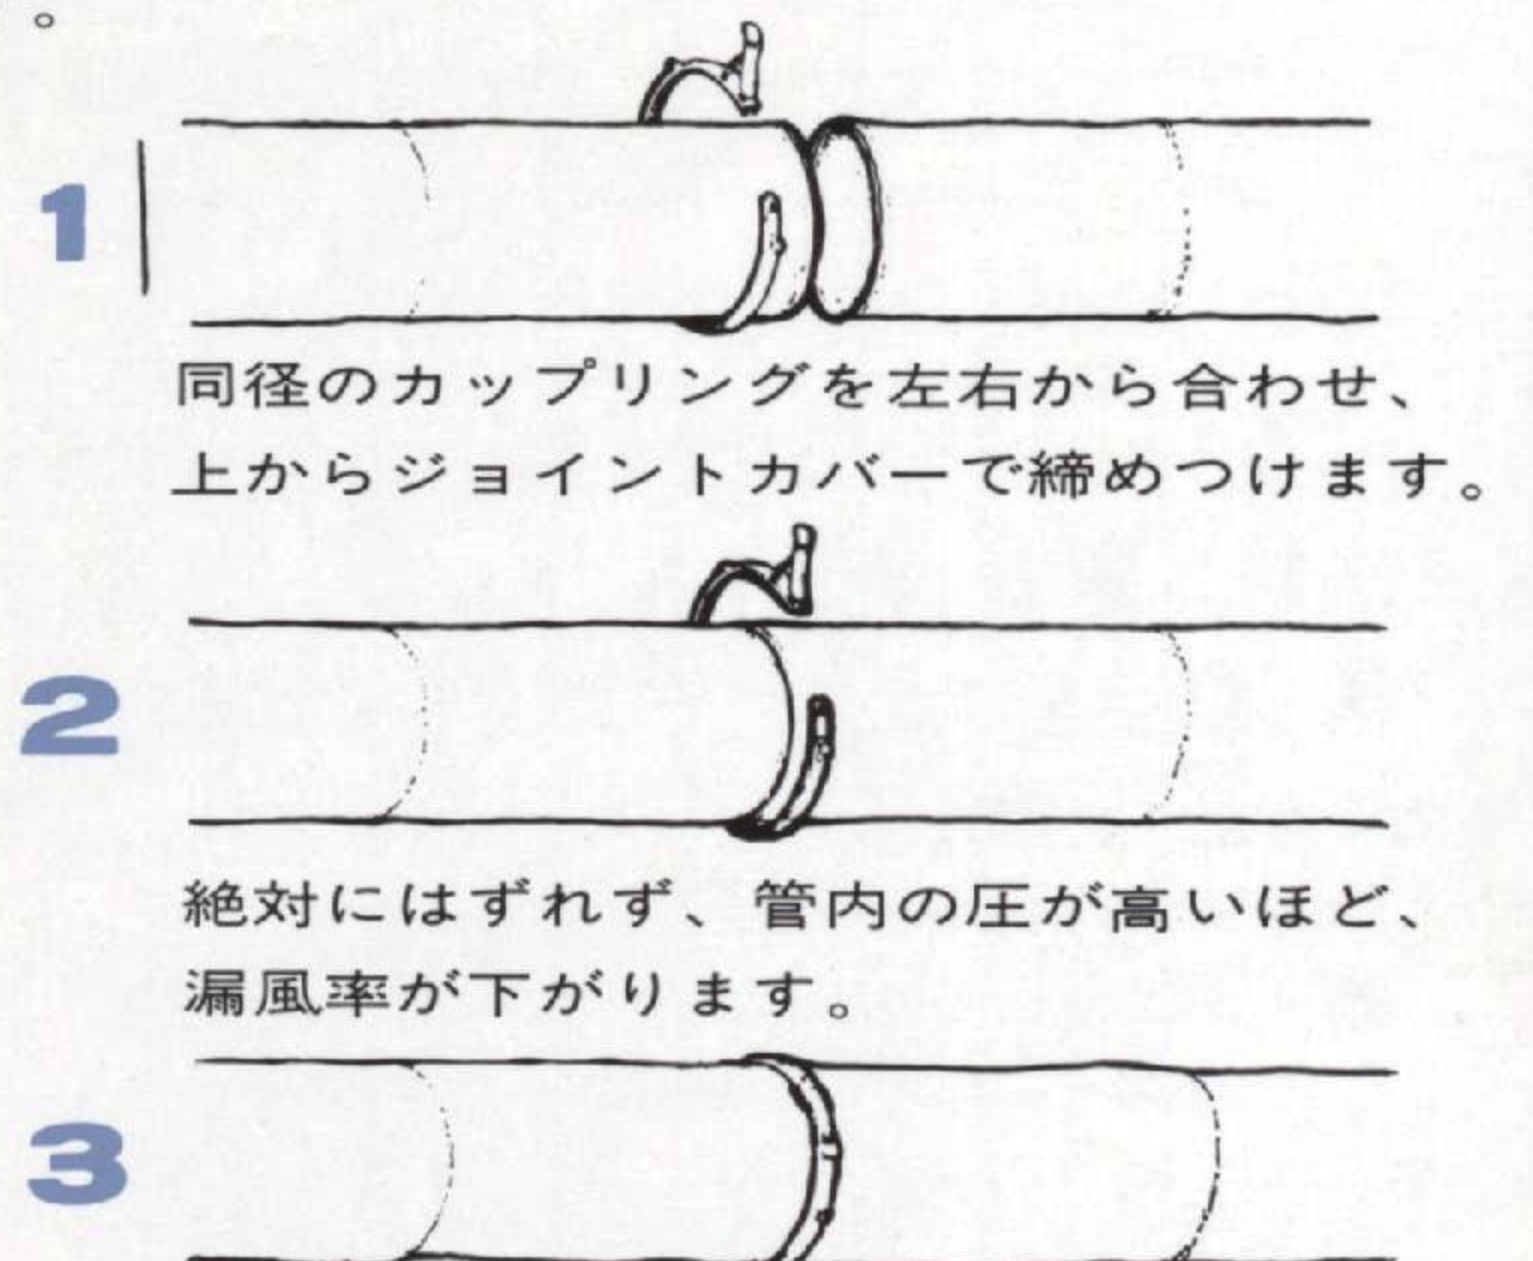 。
1
同径のカップリングを左右から合わせ、
上からジョイントカバーで締めつけます。
2
絶対にはずれず、管内の圧が高いほど、
漏風率が下がります。
3